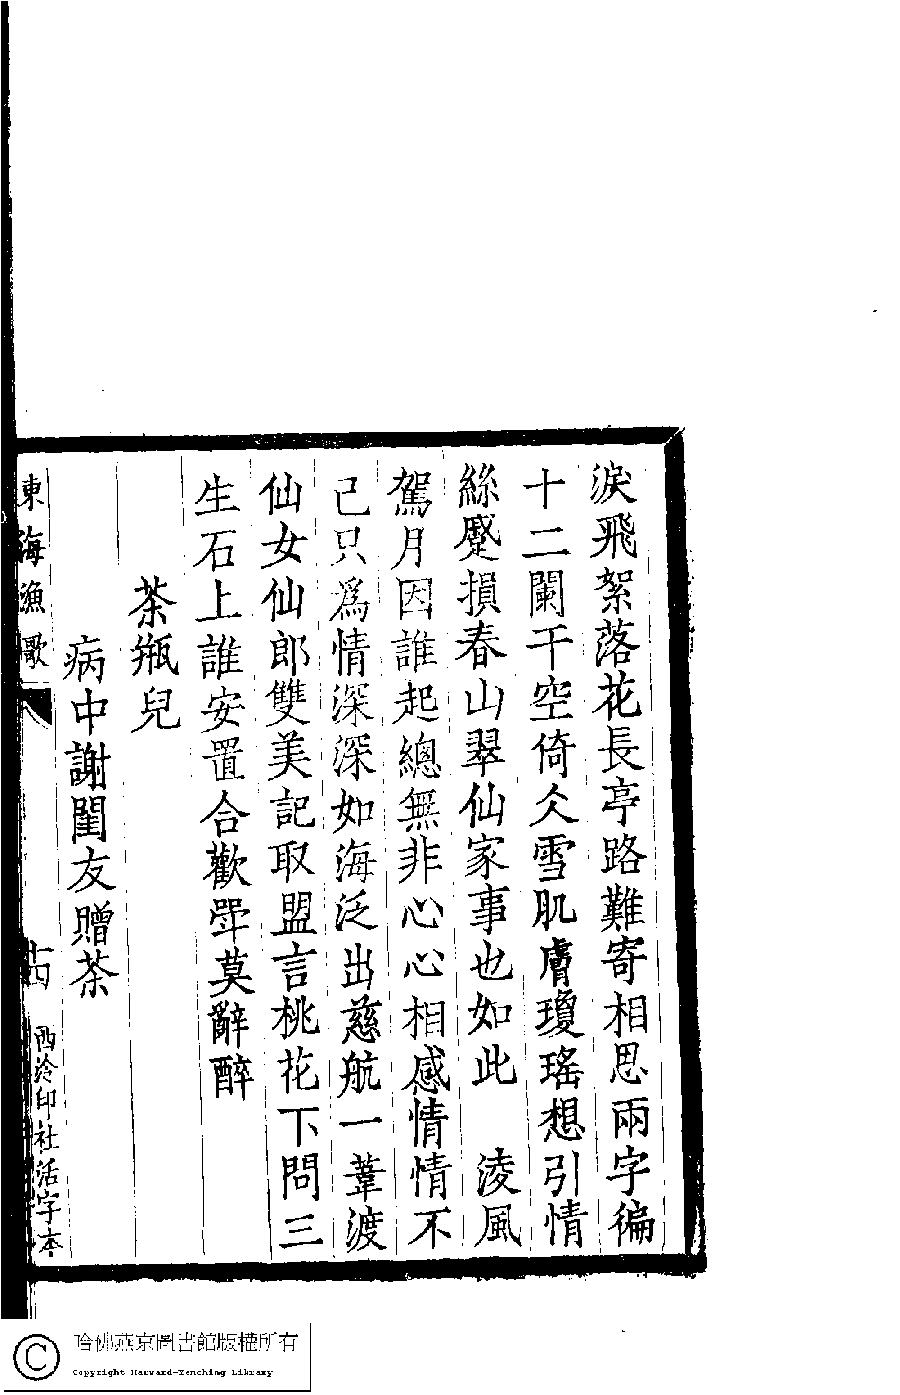 淚飛絮落花長亭路難寄相思兩字徧
十二闌干空倚仌雪肌膚瓊瑤想引情
絲蹙損春山翠仙家事也如此　淩風
駕月因誰起總無非心心相感情情不
己只為情深深如海泛出慈航一葦渡
仙女仙郎雙美記取盟言桃花下問三
生石上誰安置合歡斝莫辭醉
茶瓶兒
病中謝閨友贈茶
東海漁歌
西泠印社活字本
哈佛燕京圖書館版權所有
Copyright Harvard-Yenching Library